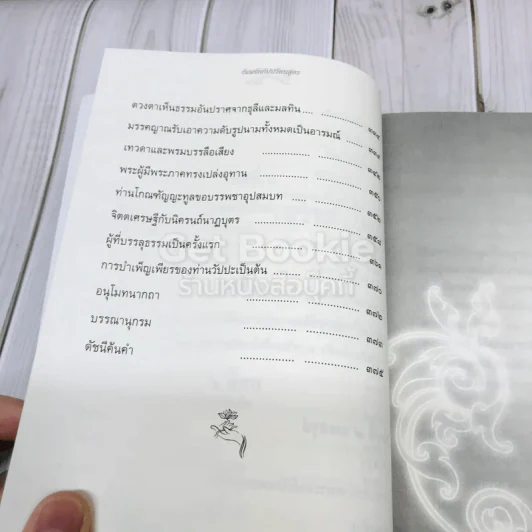 ธัมมจักกัปปวัตตนสูตร
ดวงตาเห็นธรรมอันปราศจากธุลีและมลทิน .... ................ ๓๓๔
มรรคญาณรับเอาความดับรูปนามทั้งหมดเป็นอารมณ์ ................ ๓๓๙
เทวดาและพรหมบรรลือเสียง ................ ................ ๓๔๒
พระผู้มีพระภาคทรงเปล่งอุทาน ................ ................ ๓๕๐
ท่านโกณฑัญญะทูลขอบรรพชาอุปสมบท .... ................ ๓๕๒
จิตตเศรษฐีกับนิครนถ์นาฏบุตร ................ ................ ๓๕๘
ผู้ที่บรรลุธรรมเป็นครั้งแรก ................ ................ ๓๖๑
การบำเพ็ญเพียรของท่านวัปปะเป็นต้น ................ ๓๗๐
อนุโมทนากถา ................ ................ ๓๗๒
บรรณานุกรม ................ ................ ๓๗๓
ดัชนีค้นคำ ................ ................ ๓๗๕
Get Bookie
ร้านหนังสือบุ๊คกี้